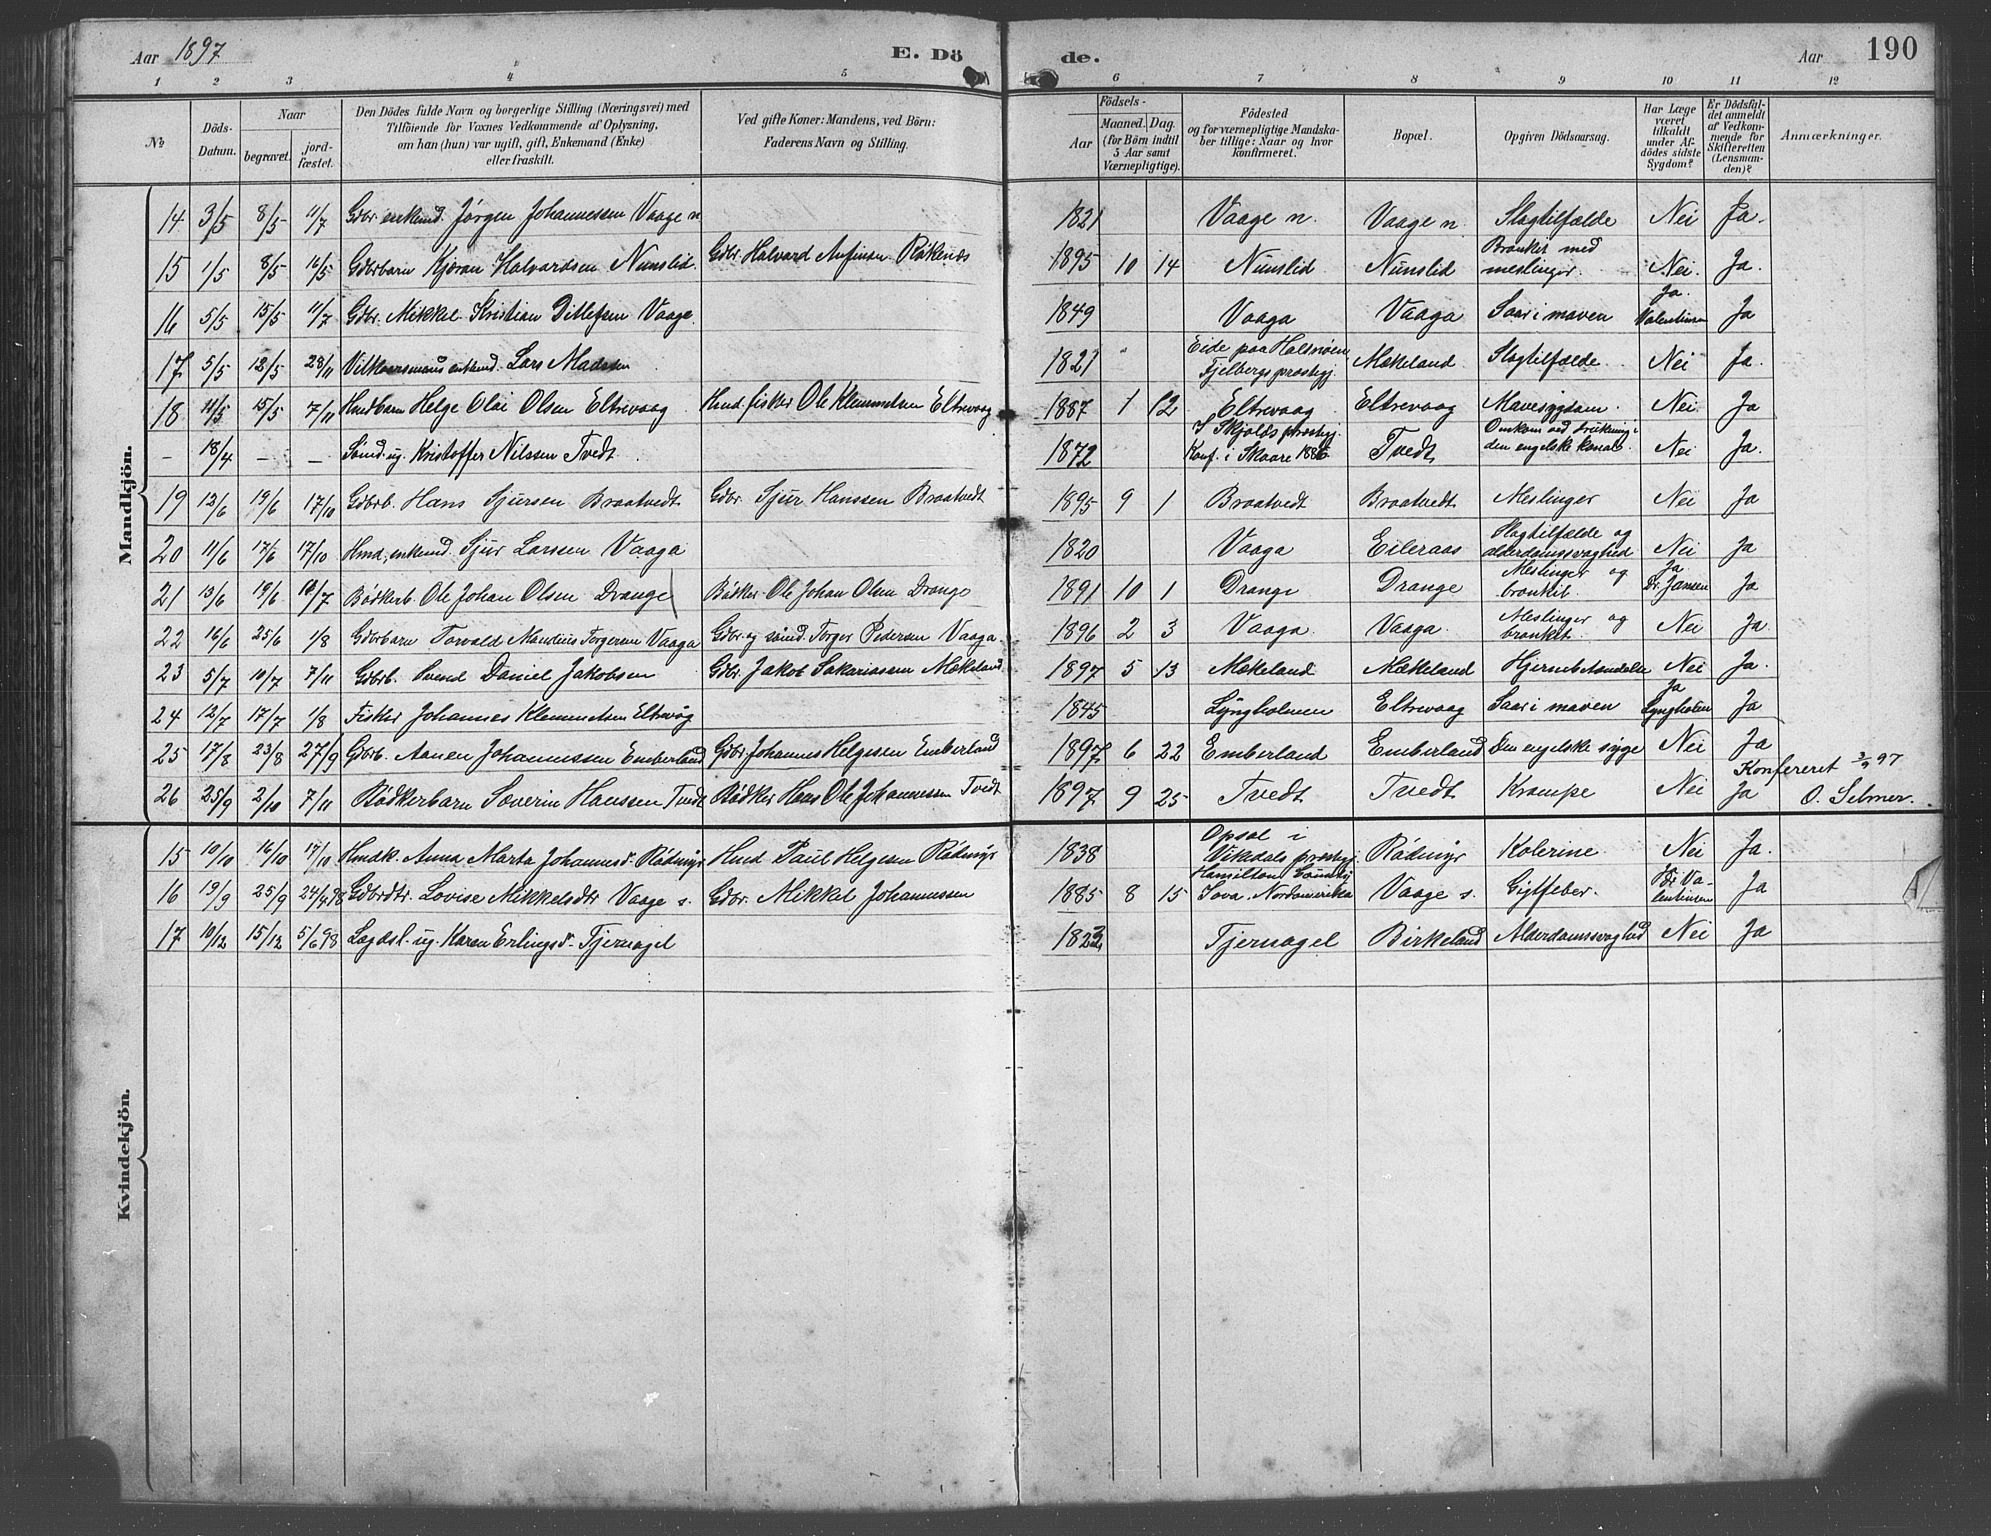 Aar 1897
E. Dö de.
Aar 190
1 2 3 4 5 6 7 8 9 10 11 12
№
Döds-Datum.
Naar
begravet.
jord-fæstet.
Den Dödes fulde Navn og borgerlige Stilling (Næringsvei) med
Tilföiende for Voxnes Vedkommende af Oplysning,
om han (hun) var ugift, gift, Enkemand (Enke)
eller fraskilt.
Ved gifte Koner: Mandens, ved Börn:
Faderens Navn og Stilling.
Födsels-
Aar
Maaned. Dag.
(for Börn indtil
5 Aar samt
Værnepligtige).
Födested
og for værnepligtige Mandska-
ber tillige: Naar og hvor
konfirmeret.
Bopæl.
Opgiven Dödsaarsag.
Har Læge
været
tilkaldt
under Af-
dödes sidste
Sygdom?
Er Dödsfal-
det anmeldt
af Vedkom-
mende for
Skifteretten
(Lensman-
den)?
Anmærkninger.
Mandkjön.
14 3/5 8/5 11/7 Gdbr. enkemd. Jørgen Johannessen Vaage n 1821 Vaage n. Vaage n Slagtilfælde Nei Ja.
15 1/5 8/5 16/5 Gdbrbarn Kjøran Halvardsen Nunslid Gdbr. Halvard Anfinsen Røkenes 1895 10 14 Nunslid Nunslid Bronkit med meslinger Nei. Ja.
16 5/5 15/5 11/7 Gdbr. Mikkel Kristian Ditlefsen Vaage. 1849 Vaaga Vaaga Saar i maven Ja. Valentinsen Ja
17 5/5 12/5 28/11 Vilkaarsmand enkemd. Lars Madssen 1821 Eide paa Halsnøen, Fjelbergs prestgj. Mækeland Slagtilfælde Nei Ja.
18 11/5 15/5 7/11 Hmdbarn Helge Olai Olsen Eltrevaag Hmd. fisker Ole Klemmetsen Eltrevaag 1887 1 12 Eltrevaag Eltrevaag Mavesygdom. Nei Ja
– 18/4 – – Sømd. ug. Kristoffer Nilssen Tvedt. 1872 I Skjolds prestgj. Konf. i Skaare 1886 Tvedt Omkom ved drukning i den engelske kanal. Nei Ja.
19 12/6 19/6 17/10 Gdbrb. Hans Sjursen Braatvedt Gdbr. Sjur Hanssen Braatvedt 1895 9 1 Braatvedt Braatvedt Meslinger Nei Ja
20 11/6 17/6 17/10 Hmd, enkemd. Sjur Larssen Vaaga 1820 Vaaga Eileraas Slagtilfælde og alderdomssvaghed Nei Ja
21 13/6 19/6 10/7 Bødkerb. Ole Johan Olsen Drange Bødker Ole Johan Olsen Drange 1891 10 1 Drange Drange Meslinger og bronkit. Ja Dr. Jansen Ja
22 16/6 25/6 1/8 Gdbrbarn Torvald Mandius Torgersen Vaaga Gdbr. og smed. Torger Pedersen Vaaga. 1896 2 3 Vaaga. Vaaga. Meslinger og bronkit. Nei Ja.
23 5/7 10/7 7/11 Gdbrb. Svend Daniel Jakobsen Gdbr. Jakob Sakariassen Mækeland 1897 5 13 Mækeland Mækeland Hjernebetændelse Nei Ja.
24 12/7 17/7 1/8 Fisker Johannes Klemmetsen Eltrevåg 1845 Lyngholmen Eltrevaag Saar i maven Ja Lyngholm Ja
25 17/8 23/8 27/9 Gdbrb. Aanen Johannessen Emberland Gdbr. Johannes Helgesen Emberland 1897 6 22 Emberland Emberland Den engelske syge Nei Ja
26 25/9 2/10 7/11 Bødkerbarn Sæverin Hanssen Tvedt Bødker Hans Ole Johannessen Tvedt 1897 9 25 Tvedt Tvedt Krampe Nei Ja
Konfereret 3/9 97
O. Selmer.
Kvindekjön.
15 10/10 16/10 17/10 Hmdk. Anna Marta Johannesd. Rødmyr Hmd Paul Helgesen Rødmyr 1838 Opsal i Vikedals prestgj. Rødmyr Kolerine Nei Ja.
16 19/9 25/9 24/4 98 Gdbrdtr. Lovise Mikkelsdtr Vaage s. Gdbr. Mikkel Johannessen 1885 8 15 Hamilton County Iova. Nordamerika Vaage s. Gigtfeber. Valentinsen Ja
17 10/12 15/12 5/6 98 Lægdsl. ug. Karen Erlingsd. Tjernagel 1823 Tjernagel Birkeland Alderdomssvaghed Nei Ja